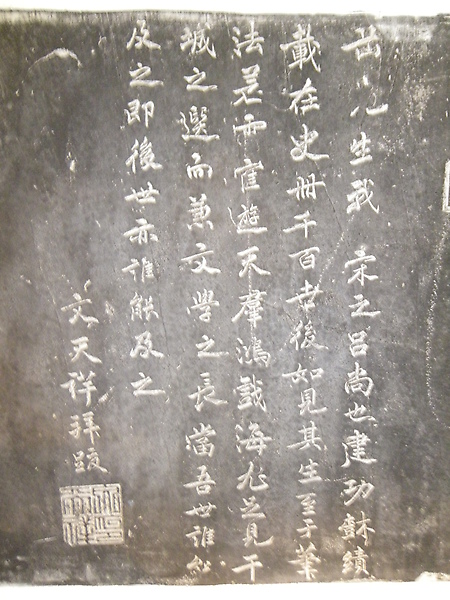 岳先生我 宋之呂尚也建功樹績
載在史冊千百年後如見其生至于筆
法若雲鶴遊天羣鴻戲海尤足見干
城之選而兼文學之長當吾世誰能
及之即後世亦誰能及之
文天祥拜跋